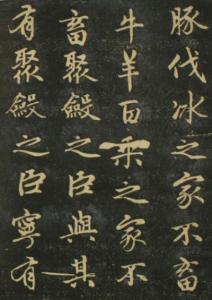 豚伐冰之家不畜
牛羊百乘之家不
畜聚斂之臣與其
有聚斂之臣寧有